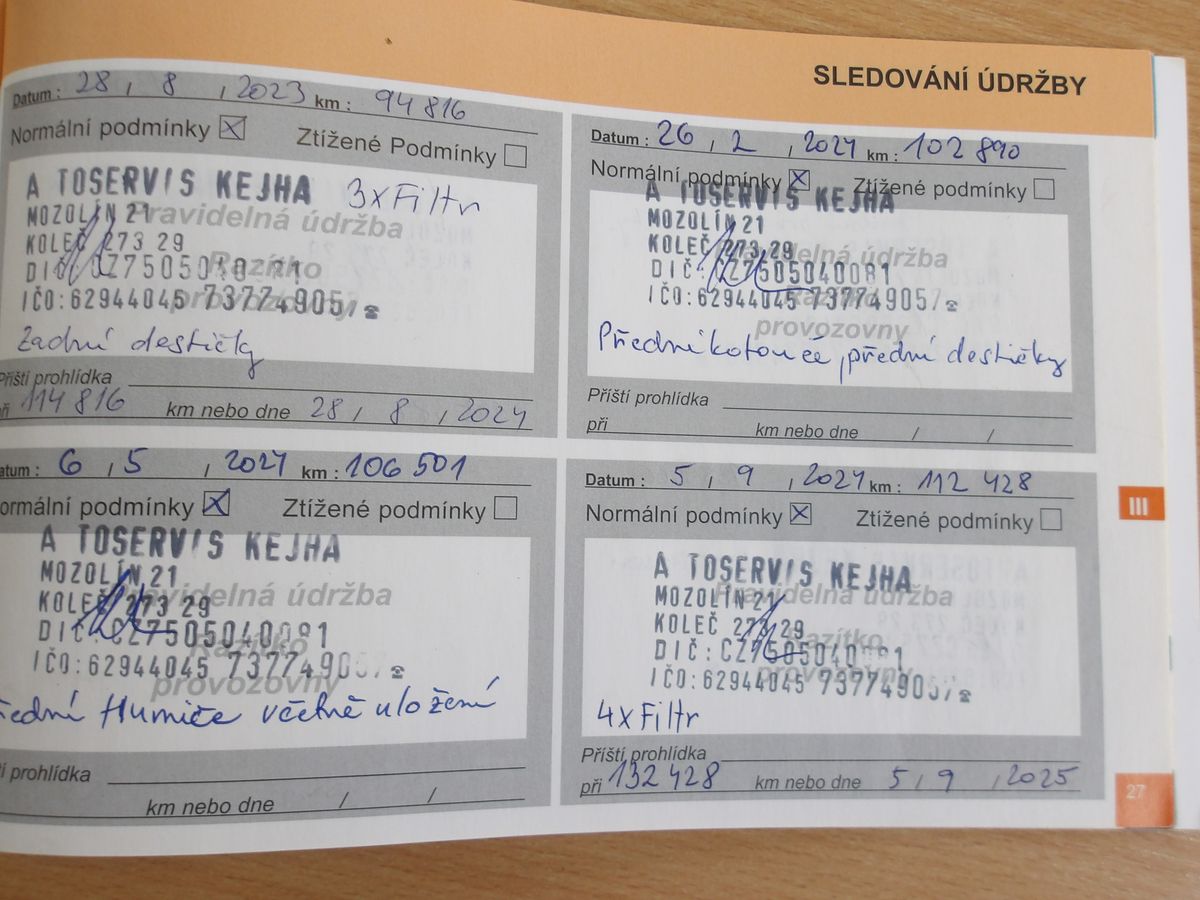 SLEDOVÁNÍ ÚDRŽBY
Datum : 28 / 8 / 2023 km : 94 816
Normální podmínky X Ztížené Podmínky
A TOSERVIS KEJHA 3xFiltr
MOZOLÍN 21 Pravidelná údržba
KOLEČ 273 29
DIČ: Razítko
IČO:62944045 737749057 provozovny
Zadní destičky
Příští prohlídka
při 114 816 km nebo dne 28 / 8 / 2024
Datum : 26 / 2 / 2024 km : 102 890
Normální podmínky X Ztížené podmínky
A TOSERVIS KEJHA
MOZOLÍN 21
KOLEČ 273 29 Pravidelná údržba
DIČ: CZ7505040081
IČO:62944045 737749057 Razítko
provozovny
Přední kotouče, přední destičky
Příští prohlídka
při km nebo dne / /
atum : 6 / 5 / 2024 km : 106 501
ormální podmínky X Ztížené podmínky
A TOSERVIS KEJHA
MOZOLÍN 21
KOLEČ 273 29 Pravidelná údržba
DIČ: CZ7505040081 Razítko
IČO:62944045 737749057
provozovny
řední tlumiče včetně uložení
í prohlídka
km nebo dne / /
Datum : 5 / 9 / 2024 km : 112 428
Normální podmínky X Ztížené podmínky
A TOSERVIS KEJHA
MOZOLÍN 21 Pravidelná údržba
KOLEČ 273 29 Razítko
DIČ: CZ7505040081
IČO:62944045 737749057 provozovny
4xFiltr
Příští prohlídka
při 132 428 km nebo dne 5 / 9 / 2025
III
27